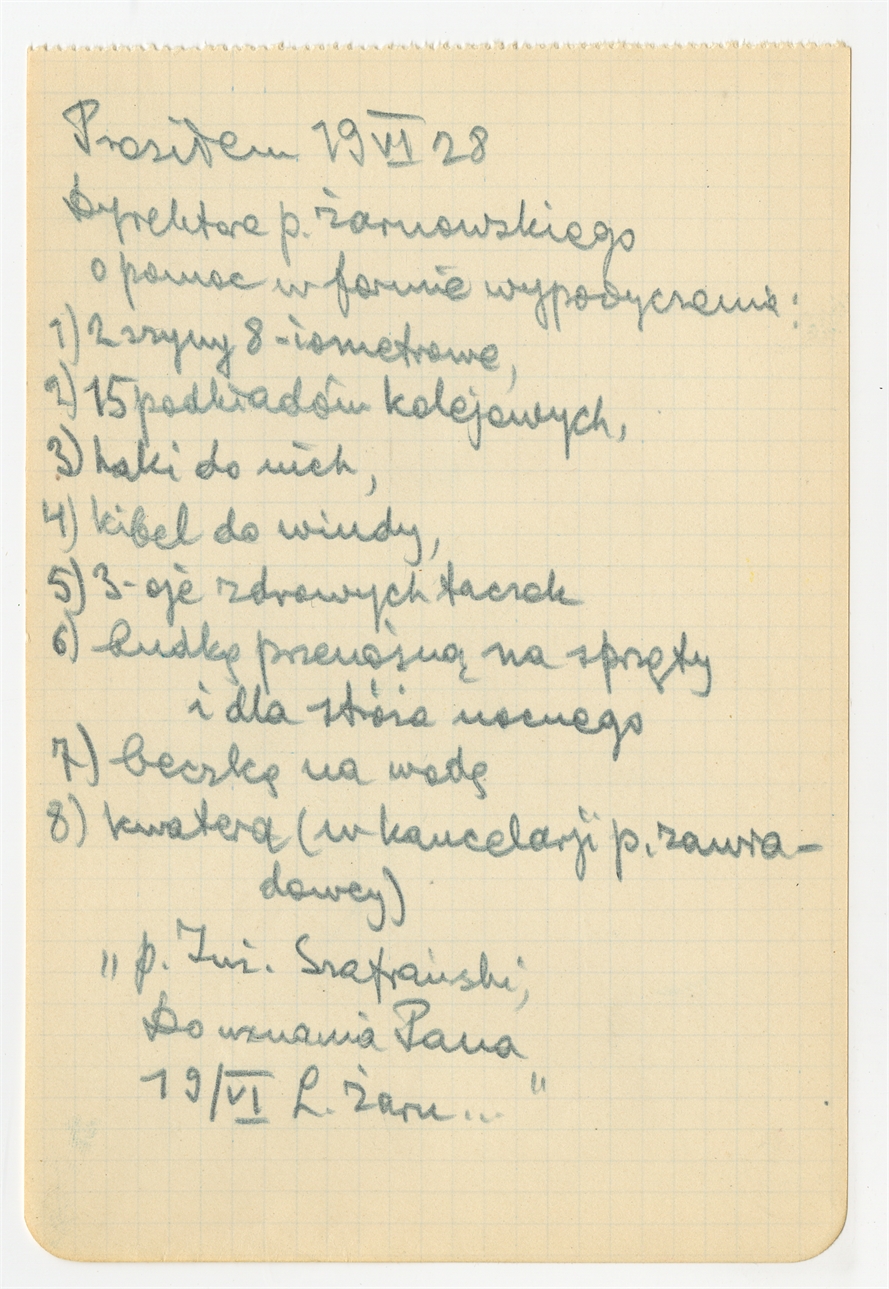 Prosiłem 19 VI 28
Dyrektora p. Żarnowskiego
o pomoc w formie wypożyczenia:
1) 2 szyny 8-iometrowe,
2) 15 podkładów kolejowych,
3) haki do nich,
4) kibel do windy,
5) 3-oje zdrowych taczek
6) budkę przenośną na sprzęty
i dla stróża nocnego
7) beczkę na wodę
8) kwaterą (w kancelarji p. zawia-
dowcy)
„ p. Inż. Szafrański,
Do uznania Pana
19/VI L. Żarn... "